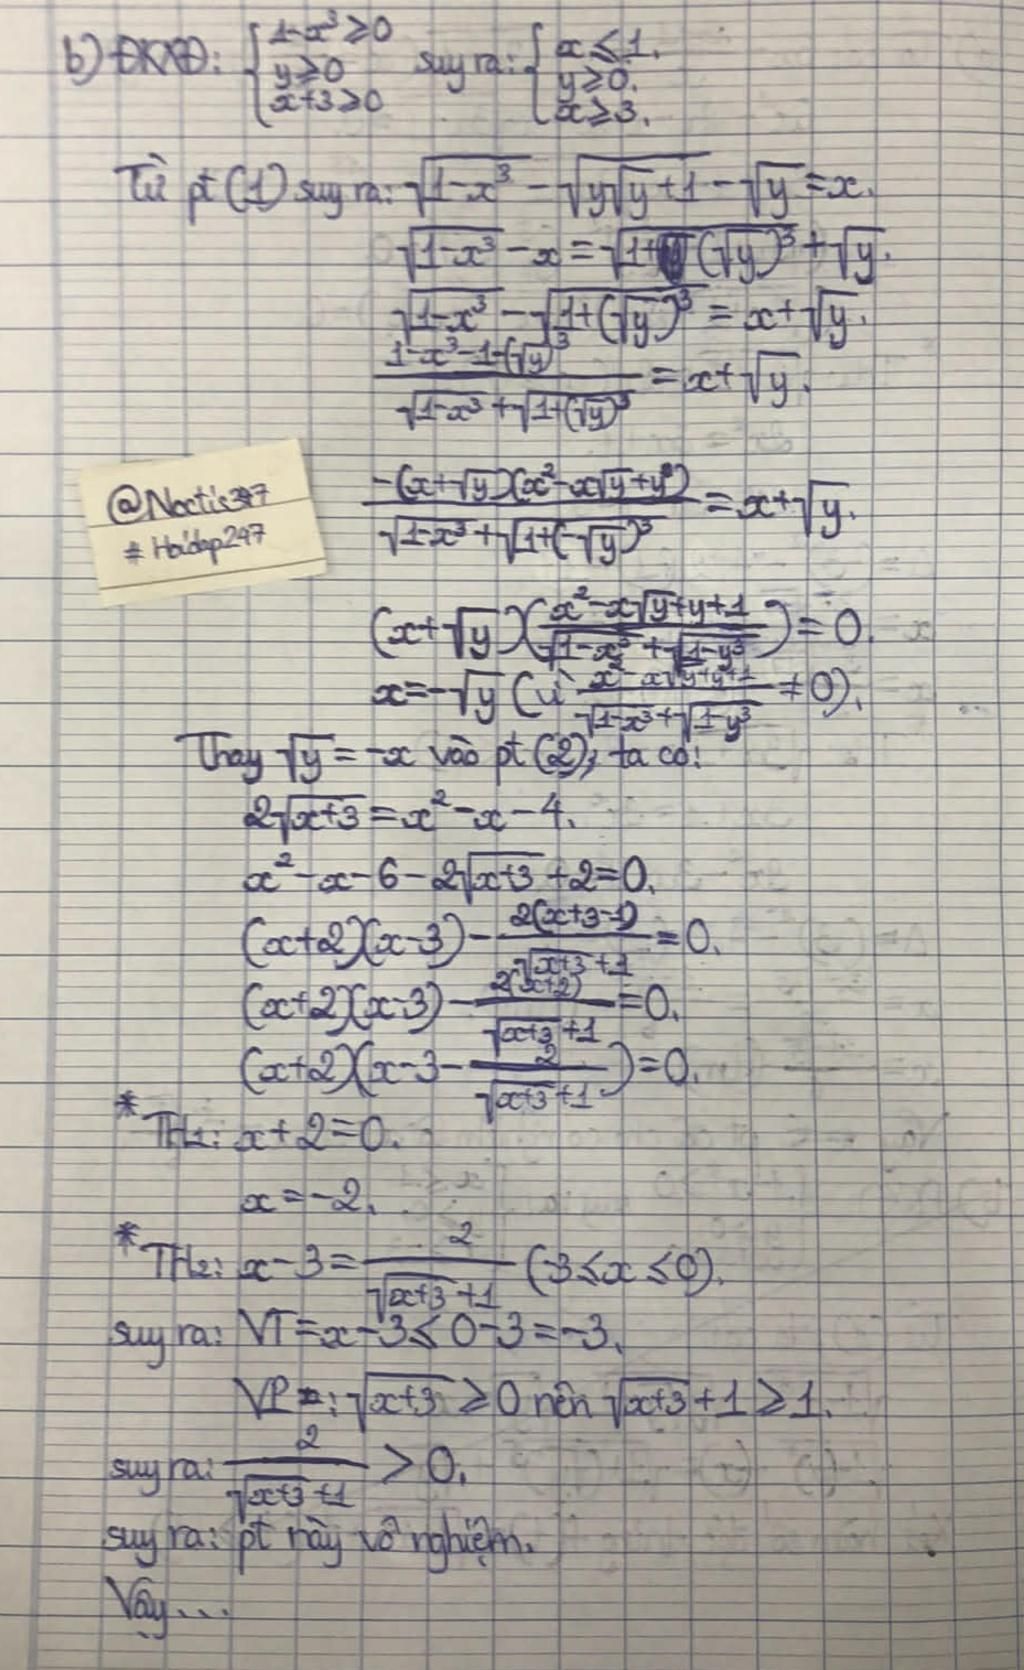 b) ĐKXĐ: { 1-x³ ≥ 0 ; y ≥ 0 ; x+3 ≥ 0 suy ra: { x ≤ 1. ; y ≥ 0. ; x ≥ 3.
Từ pt (1) suy ra: √(1-x³) - √(y√y+1) - √y = x.
√(1-x³) - x = √(1+(√y)³) + √y.
√(1-x³) - √(1+(√y)³) = x+√y.
(1-x³-1-(√y)³)/(√(1-x³)+√(1+(√y)³)) = x+√y.
@Noctis347
# Hoidap247
(-(x+√y)(x²-x√y+y))/(√(1-x³)+√(1+(-√y)³)) = x+√y.
(x+√y)((x²-x√y+y+1)/(√(1-x³)+√(1-y³))) = 0.
x = -√y (vì (x²-x√y+y+1)/(√(1-x³)+√(1-y³)) ≠ 0).
Thay √y = -x vào pt (2), ta có:
2√(x+3) = x²-x-4.
x²-x-6-2√(x+3)+2=0.
(x+2)(x-3) - (2(x+3-1))/(√(x+3)+1) = 0.
(x+2)(x-3) - (2(x+2))/(√(x+3)+1) = 0.
(x+2)(x-3 - 2/(√(x+3)+1)) = 0.
* TH1: x+2=0.
x = -2.
* TH2: x-3 = 2/(√(x+3)+1) (-3 ≤ x ≤ 0).
suy ra: VT = x-3 ≤ 0-3 = -3.
VP : √(x+3) ≥ 0 nên √(x+3)+1 ≥ 1.
suy ra: 2/(√(x+3)+1) > 0.
suy ra: pt này vô nghiệm.
Vậy...